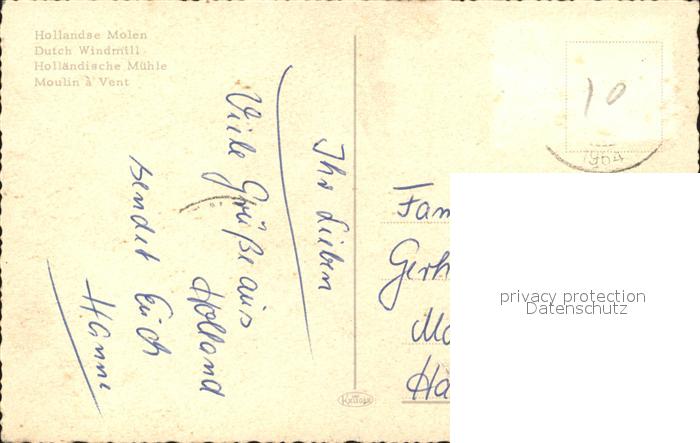 Hollandse Molen
Dutch Windmill
Holländische Mühle
Moulin à Vent
Ihr Lieben
Viele Grüße aus
Holland
sendet Euch
Hanne
10
1964
Fam
Gerh
Ha
Krüger
privacy protection
Datenschutz